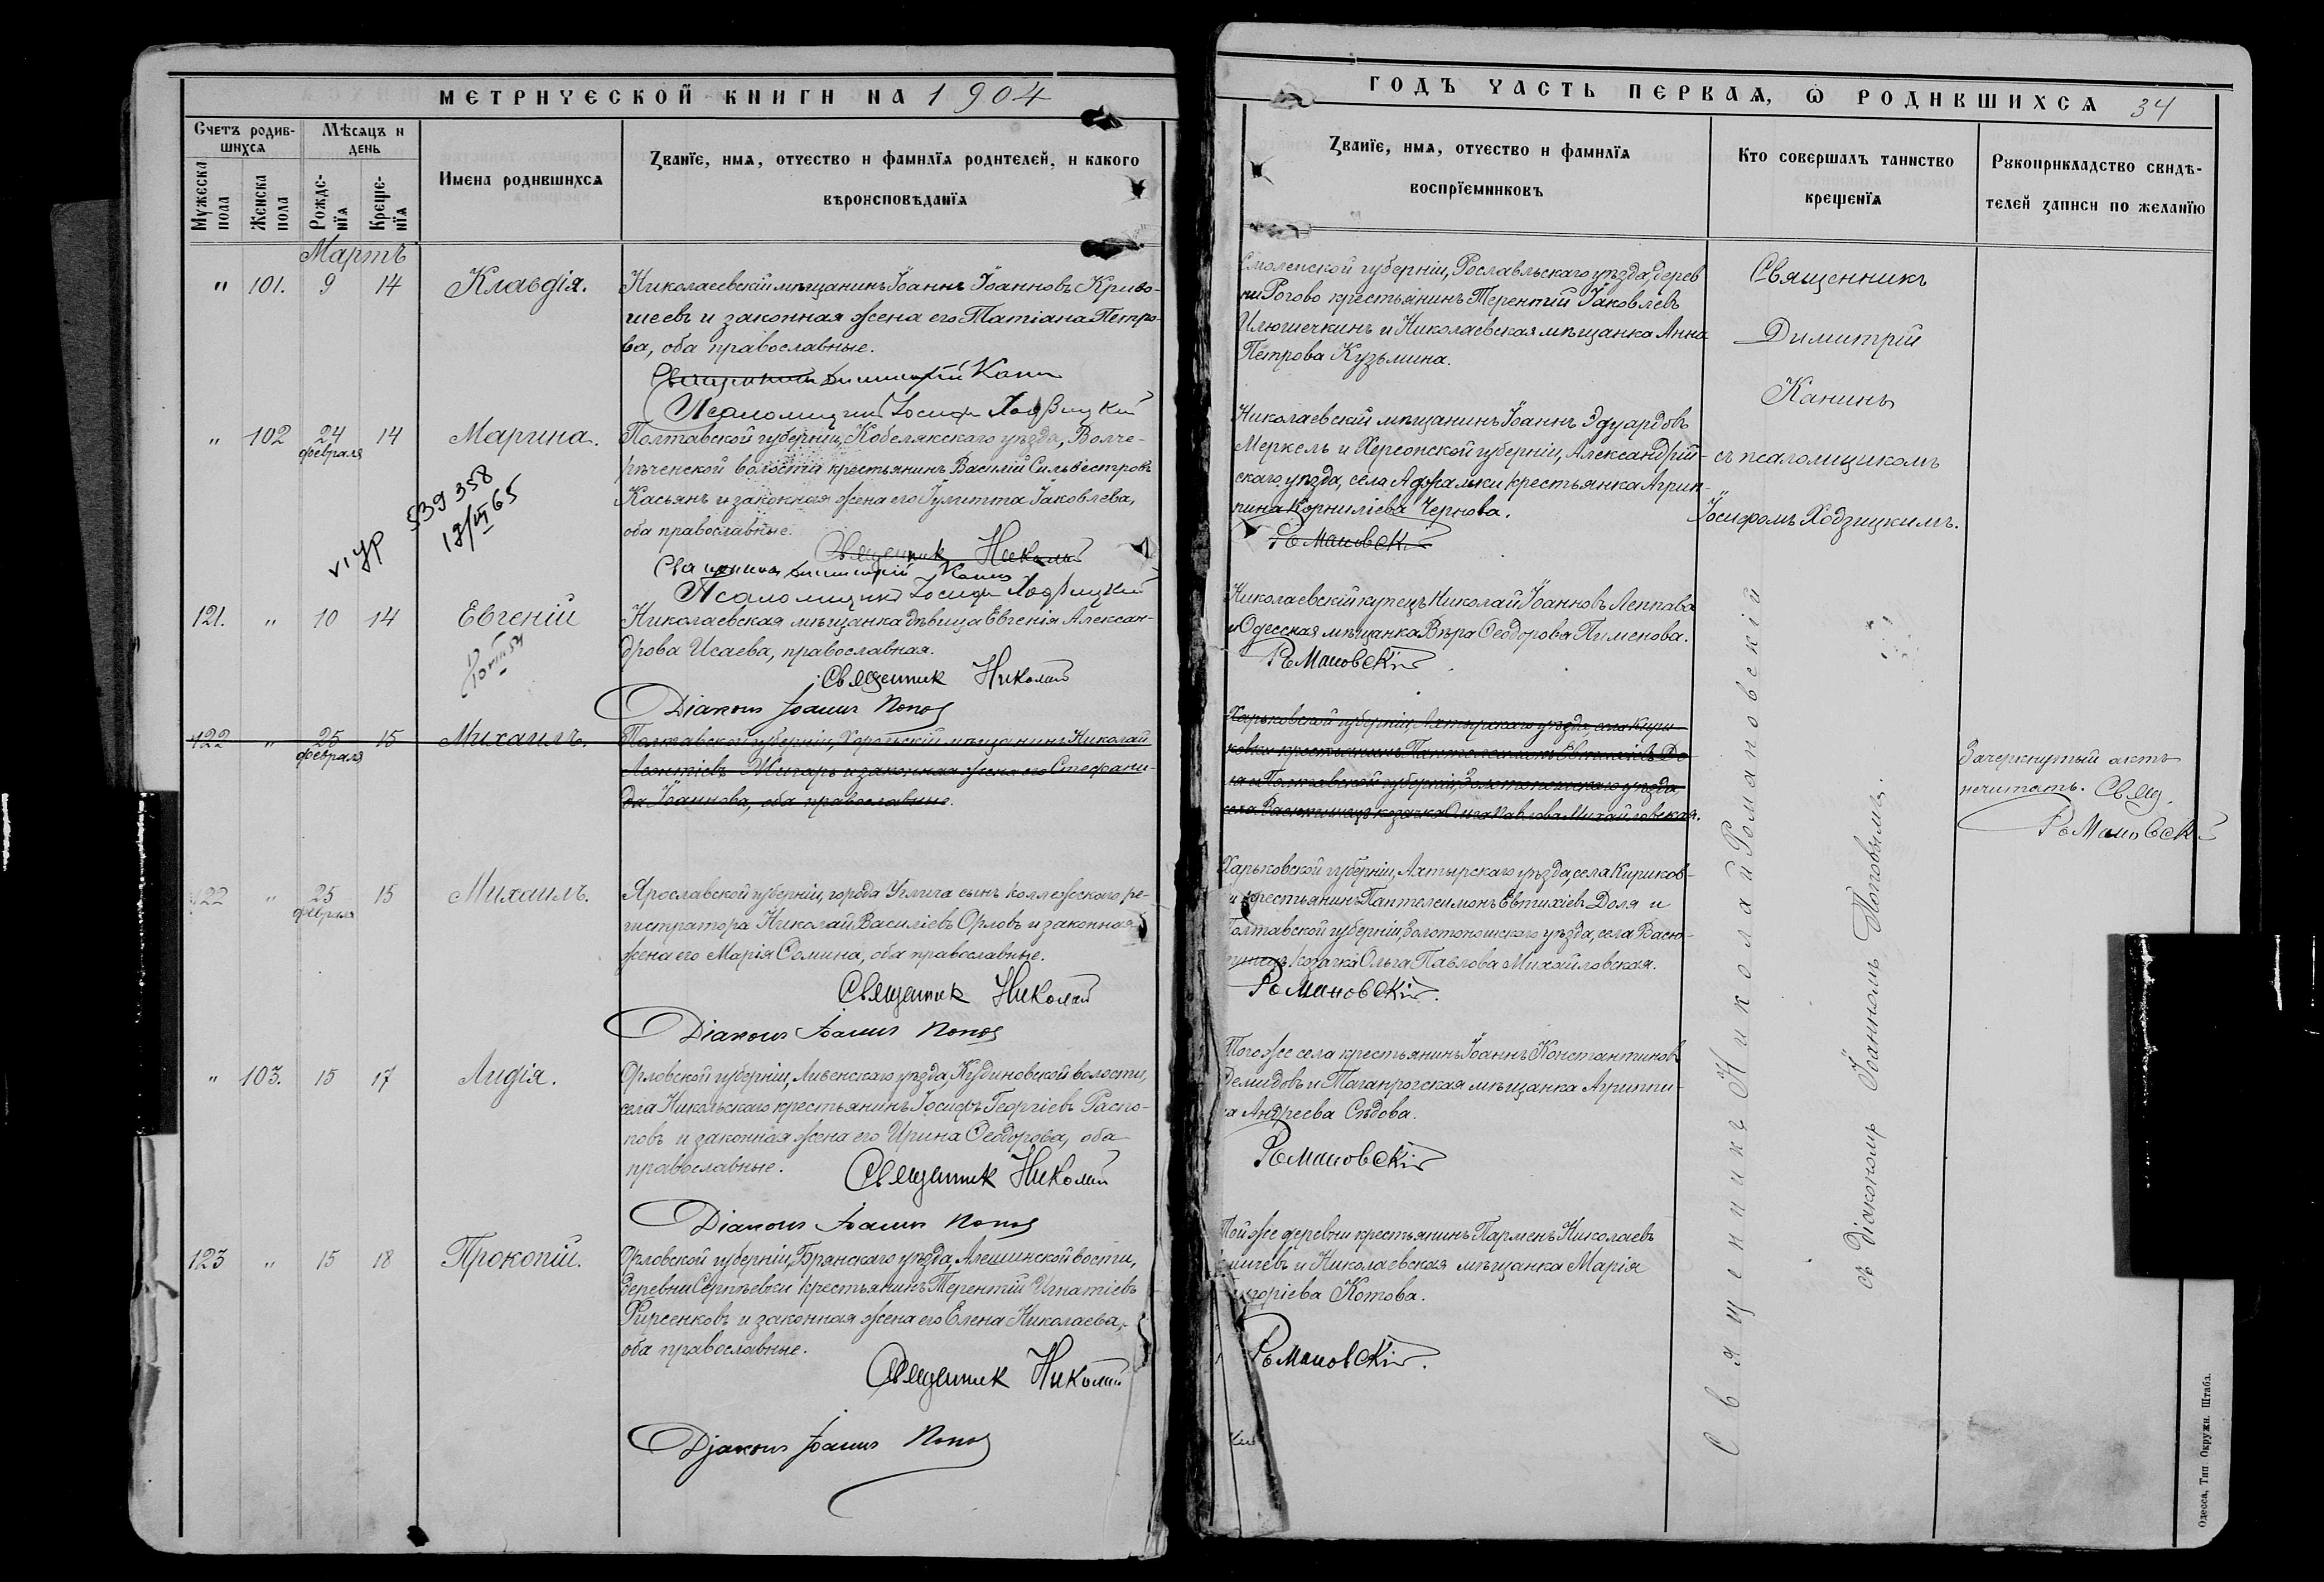 МЕТРИЧЕСКОЙ КНИГИ НА 1904
Счетъ родившихся
Мѣсяцъ и день
Имена родившихся
Званїе, имя, отчество и фамилїя родителей, и какого
вѣроисповѣданїя
Мужеска пола
Женска пола
Рожденїя
Крещенїя
Мартъ
" 101. 9 14 Клавдія.
Николаевскій мѣщанинъ Іоаннъ Іоанновъ Криво-
шеевъ и законная жена его Татіана Петро-
ва, оба православные.
Священникъ Димитрій Канин
Псаломщикъ Іосифъ Ходзицкій
" 102 24 февраля 14 Марина.
Полтавской губерніи, Кобелякскаго уѣзда, Волче-
рѣченской волости крестьянинъ Василій Сильвестровъ
Касьянъ и законная жена его Іулитта Іаковлева,
оба православные.
Священник Николай
Священникъ Димитрій Канин
Псаломщикъ Іосифъ Ходзицкій
539358
121. " 10 14 Евгеній
Николаевская мѣщанка дѣвица Евгенія Алексан-
дрова Исаева, православная.
Священник Николай
Діаконъ Іоаннъ Попов
122 " 25 февраля 15 Михаилъ.
Полтавской губерніи, Хорольскій мѣщанинъ Николай
Леонтіевъ Жигарь и законная жена его Стефани-
да Іоаннова, оба православные.
122 " 25 февраля 15 Михаилъ.
Ярославской губерніи, города Углича сынъ коллежскаго ре-
гистратора Николай Василіевъ Орловъ и законная
жена его Марія Сомина, оба православные.
Священник Николай
Діаконъ Іоаннъ Попов
" 103. 15 17 Лидія.
Орловской губерніи, Ливенскаго уѣзда, Кудиновской волости,
села Никольскаго крестьянинъ Іосифъ Георгіевъ Распо-
повъ и законная жена его Ирина Ѳеодорова, оба
православные.
Священник Николай
Діаконъ Іоаннъ Попов
123 " 15 18 Прокопій.
Орловской губерніи, Брянскаго уѣзда, Алешинской вости,
деревни Сергѣевки крестьянинъ Терентій Игнатіевъ
Фирсенковъ и законная жена его Елена Николаева,
оба православные.
Священник Николай
Діаконъ Іоаннъ Попов
ГОДЪ ЧАСТЬ ПЕРВАЯ, Ѡ РОДИВШИХСЯ 34
Званїе, имя, отчество и фамилїя
воспрїемниковъ
Кто совершалъ таинство
крещенїя
Рукоприкладство свидѣ-
телей записи по желанїю
Смоленской губерніи, Рославльскаго уѣзда, дерев
ни Рогово крестьянинъ Терентій Іаковлевъ
Илюшечкинъ и Николаевская мѣщанка Анна
Петрова Кузьмина.
Николаевскій мѣщанинъ Іоаннъ Эдуардовъ
Меркель и Херсонской губерніи, Александрій-
скаго уѣзда, села Аджамки крестьянка Агрип-
пина Корниліева Чернова.
Романовскій
Николаевскій купецъ Николай Іоанновъ Леппава
и Одесская мѣщанка Вѣра Ѳеодорова Пименова.
Романовскій
Харьковской губерніи, Ахтырскаго уѣзда, села Кири-
ковки крестьянинъ Пантелеимонъ Евтихіевъ До-
ля и Полтавской губерніи, Золотоношскаго уѣзда
села Васютинецъ козачка Ольга Павлова Михайловская.
Харьковской губерніи, Ахтырскаго уѣзда, села Кириков-
ки крестьянинъ Пантелеимонъ Евтихіевъ Доля и
Полтавской губерніи, Золотоношскаго уѣзда, села Васю-
тинецъ козачка Ольга Павлова Михайловская.
Романовскій.
Того же села крестьянинъ Іоаннъ Константиновъ
Демидовъ и Таганрогская мѣщанка Агриппи-
на Андреева Сѣдова.
Романовскій
Той же деревни крестьянинъ Парменъ Николаевъ
и Николаевская мѣщанка Марія
Котова.
Романовскій.
Священникъ
Димитрій
Канинъ
съ псаломщикомъ
Іосифомъ Ходзицкимъ.
Священникъ Николай Романовскій
съ Діакономъ Іоанномъ Поповымъ.
Зачеркнутый актъ
нечитать. Свящ.
Романовскій
Одесса, Тип Окружн. Штаба.